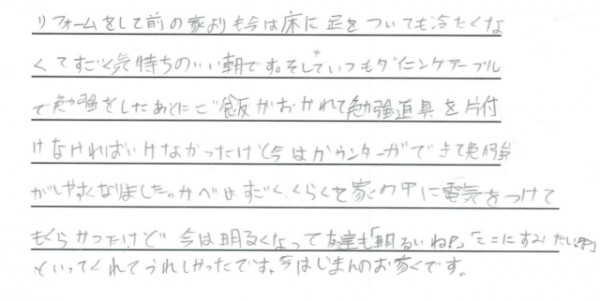 リフォームをして前の家よりも今は床に足をついても冷たくな
くてすごく気持ちのいい朝です。そしていつもダイニングテーブル
で勉強をしたあとにご飯がおかれて勉強道具を片付
けなければいけなかったけど今はカウンターができて勉強
がしやすくなりました。かべはすごくくらくて家の中に電気をつけて
もくらかったけど今は明るくなって友達も「明るいね!」、「ここにすみたい
といってくれてうれしかったです。今はじまんのお家です。